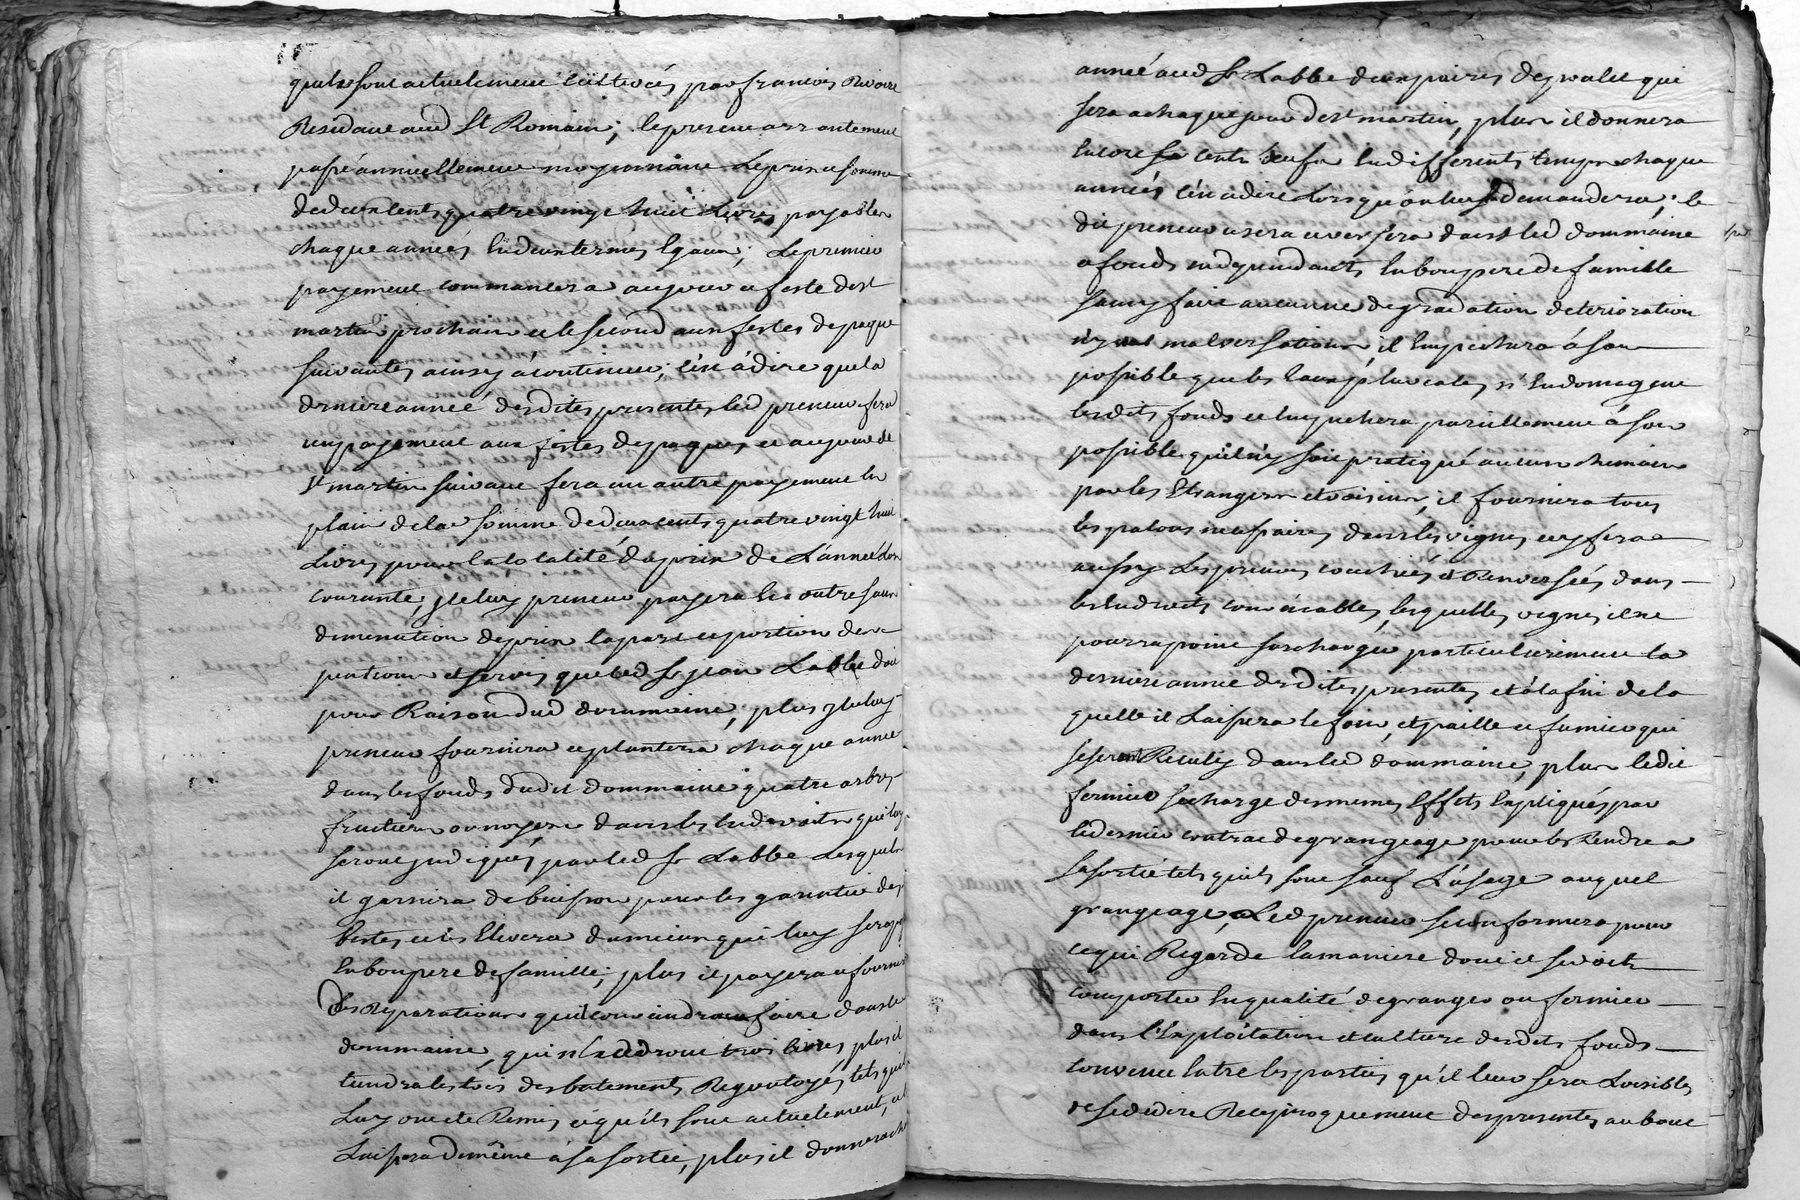 quils sont actuelement cultivés par francois Rivoire
Residant aud St Romain; le present arrantement
passé annuellement moyennant le prix et somme
de deux cents quatre vingt huit Livres payables
chaque anneés En deux termes Egaux; Le premier
payement commancera au jour et feste de st
martin prochain et le second aux festes de paque
suivantes ainsy à continuer; c'est à dire que la
derniere anneé desdites presentes led preneur fera
un payement aux festes de paques, et au jour de
St martin suivant fera un autre payement en
plain de la somme de deux cents quatre vingt huit
Livres pour la totalité du prix de L'anneé
courante; Iceluy preneur payera En outre sans
diminution de prix la part et portion des
pentions et servis que led Sr jean Labbe doit
pour Raison dud dommaine; plus Iceluy
preneur fournira et plantera chaque année
dans les fonds dudit dommaine quatre arbres
fruitiers ou noyers dans les Endroits qui luy
seront jndiqués par led Sr Labbe Lesquels
il garnira de buisson pour les garentir des
bestes et les Elevera du mieux qui luy sera
En bon pere de famille; plus il payera et fournira
Des Reparations quil conviendra faire dans le
dommaine, qui n'Excedront trois Livres, plus il
tiendra les toits des batiments Regoutoyés, tels quil
Luy ont ete Remis et quils sont actuelement, et
Laissera de même à sa sortie, plus il donnera
anneé aud Sr Labbe deux paires de poulet qui
sera a chaque jour de st martin, plus il donnera
Encore Cents oeufs En differents temps chaque
anneés c'est a dire Lorsqu'on luy demandera; le
dit preneur usera et versera dans led dommaine
a fonds En bon pere de famille
sans y faire aucunne degradation deterioration
n'y malversation, il Empechera à son
possible que les Eaux pluvialles n'Endomagent
lesdits fonds et Empechera pareillement à son
possible quil n'y soit pratiqué aucun chemain
par les Etrangers et voisins, il fournira tous
les necessaires dans les vignes et y fera
aussy Les preuves couchées et Renverseés dans
les Endroits convenables, lesquelles vignes il ne
pourra point surcharger particulierement la
derniere annee desdites presentes, et à la fin de la
quelle il Laissera le foin, et paille et fumier qui
se seront Receuly dans led dommaine, plus ledit
fermier se charge des memes Effets Expliqués par
le dernier contrat de grangeage pour les Rendre a
sa sortie tels quils sont sauf L'usage auquel
grangeage, Led preneur se conformera pour
ce qui Regarde la maniere dont il se doit
comporter En qualité de granger ou fermier
dans l'Exploitation et culture desdits fonds
convenu Entre les parties qu'il leur sera Loisible
de se dedire Reciproquement des presentes au bout